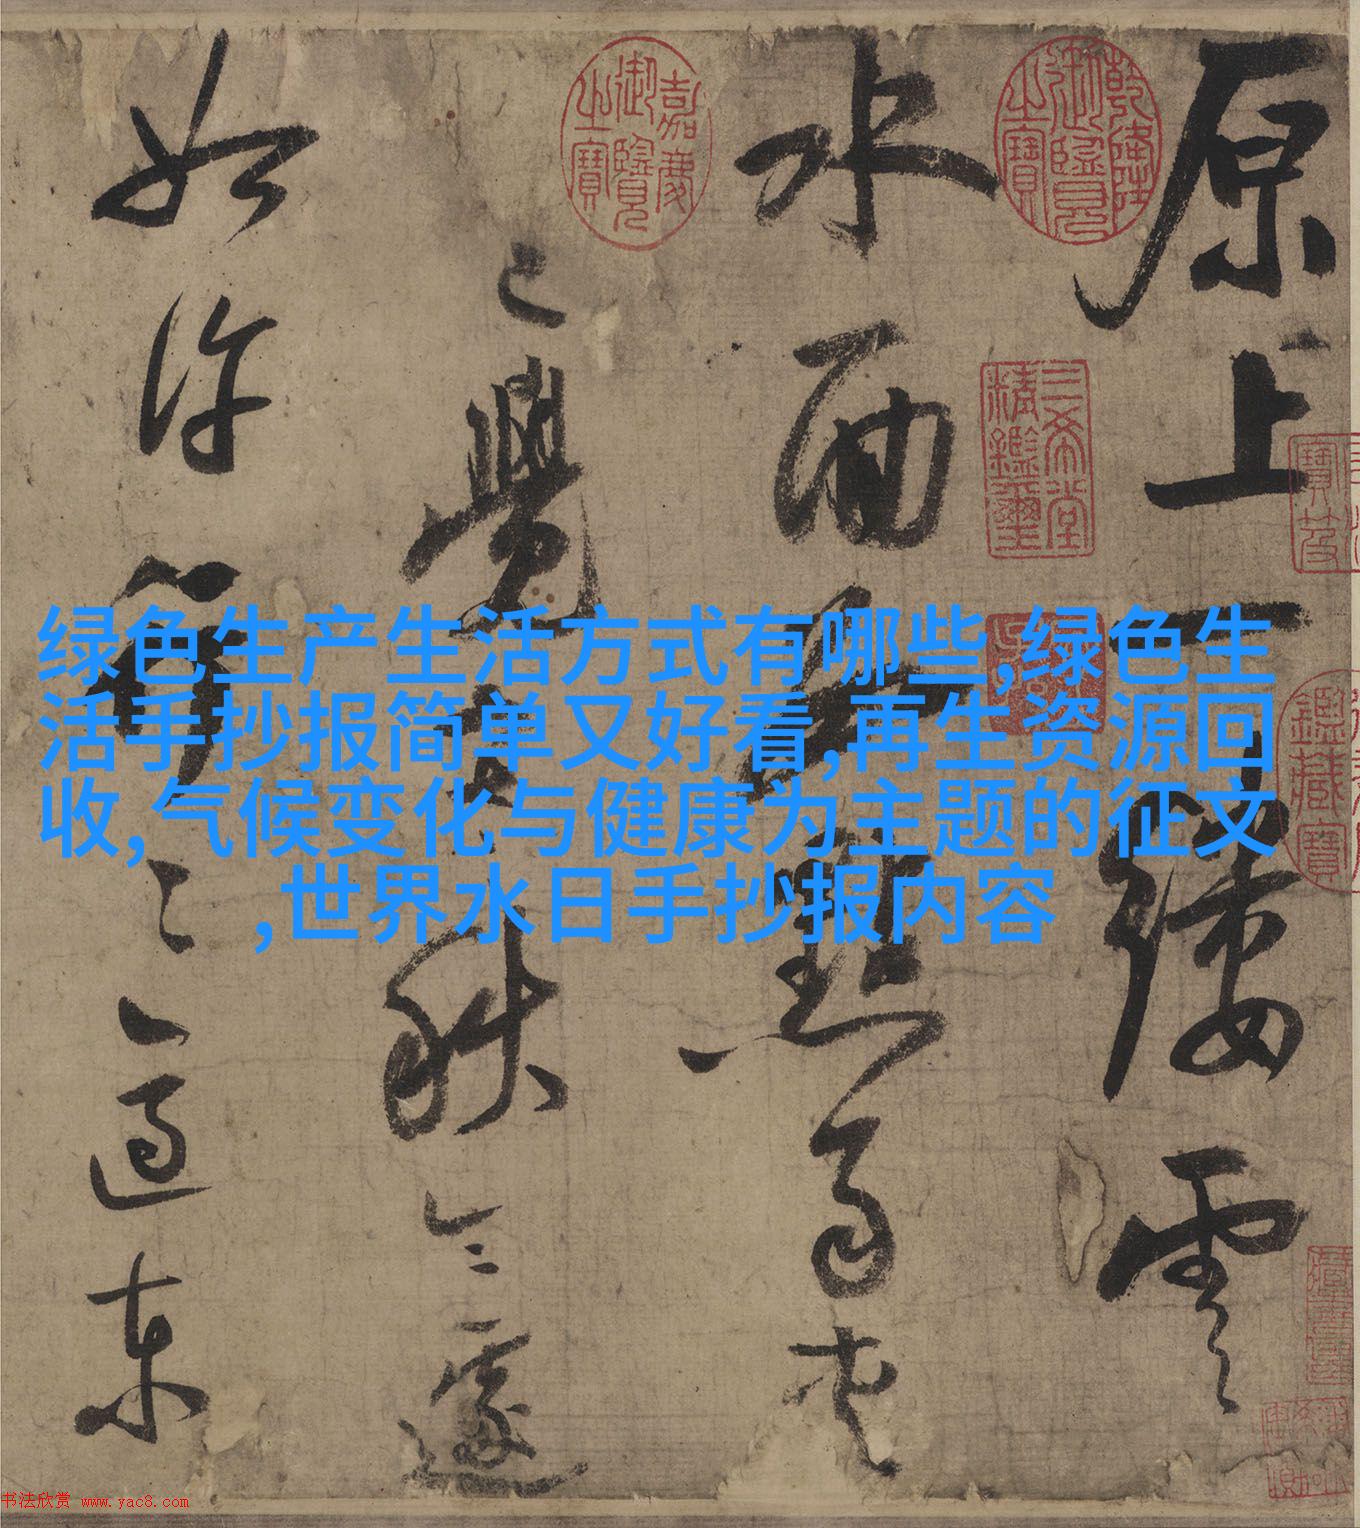 原上一縷雲
水面數點雨夾
已覺單秋令遽
如許行行適東
乾隆御覽之寶
嘉慶御覽之寶
三希堂精鑑璽
绿色生产生活方式有哪些,绿色生
活手抄报简单又好看,再生资源回
收,气候变化与健康为主题的征文
,世界水日手抄报内容
书法欣赏 www.yac8.com